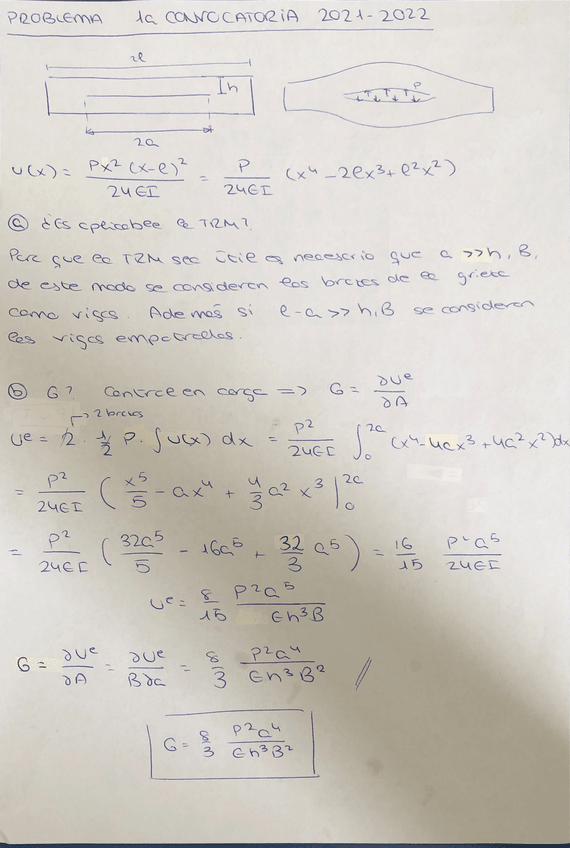 PROBLEMA 1a CONVOCATORIA 2021-2022
2l
h
P
2a
u(x) = Px²(x-l)² / 24EI = P / 24EI (x⁴ - 2lx³ + l²x²)
a) ¿Es aplicable la TRM?
Para que la TRM sea útil es necesario que a >> h, B,
de este modo se consideran los brazos de la grieta
como vigas. Además si l-a >> h, B se consideran
las vigas empotradas.
b) G? Control en carga => G = ∂Uᵉ / ∂A
→ 2 brazos
Uᵉ = 2 · 1/2 P · ∫ u(x) dx = P² / 24EI ∫₀²ᵃ (x⁴ - 4ax³ + 4a²x²)dx
= P² / 24EI ( x⁵/5 - ax⁴ + 4/3 a² x³ |₀²ᵃ
= P² / 24EI ( 32a⁵/5 - 16a⁵ + 32/3 a⁵ ) = 16/15 P²a⁵ / 24EI
Uᵉ = 8/15 P²a⁵ / Eh³B
G = ∂Uᵉ / ∂A = ∂Uᵉ / B∂a = 8/3 P²a⁴ / Eh³B² //
G = 8/3 P²a⁴ / Eh³B²